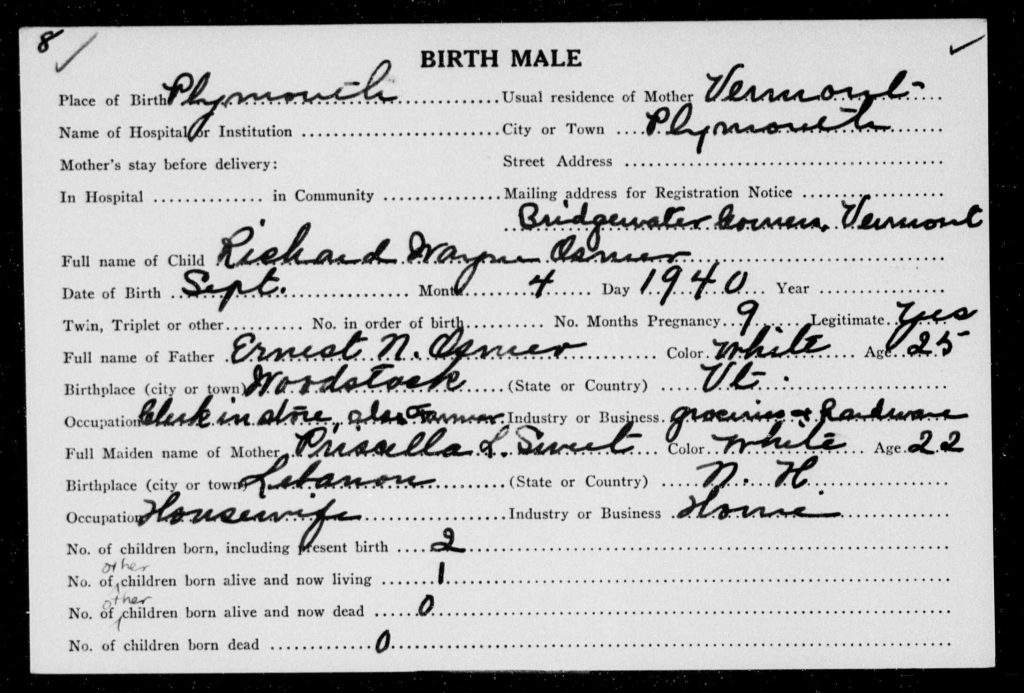 8
BIRTH MALE
Place of Birth Plymouth Usual residence of Mother Vermont
Name of Hospital or Institution City or Town Plymouth
Mother's stay before delivery: Street Address
In Hospital in Community Mailing address for Registration Notice
Bridgewater Corners, Vermont
Full name of Child Richard Wayne Osmer
Date of Birth Sept. Month 4 Day 1940 Year
Twin, Triplet or other No. in order of birth No. Months Pregnancy 9 Legitimate Yes
Full name of Father Ernest N. Osmer Color White Age 25
Birthplace (city or town) Woodstock (State or Country) Vt.
Occupation Clerk in store, also Farmer Industry or Business groceries & hardware
Full Maiden name of Mother Prissella L. Sweet Color White Age 22
Birthplace (city or town) Lebanon (State or Country) N. H.
Occupation Housewife Industry or Business Home
No. of children born, including present birth 2
other
No. of children born alive and now living 1
other
No. of children born alive and now dead 0
No. of children born dead 0